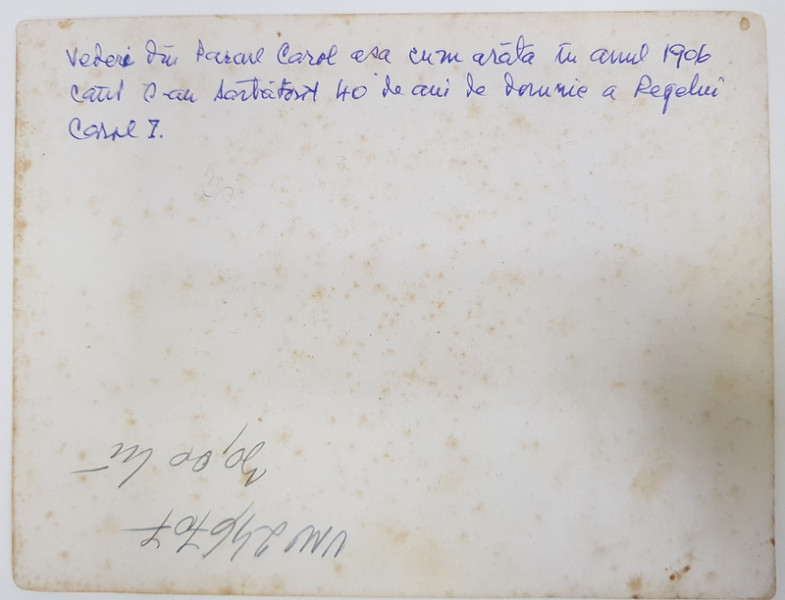 Vederi din Parcul Carol asa cum arăta în anul 1906
când s-au sărbătorit 40 de ani de domnie a Regelui
Carol I.
30,00 lei